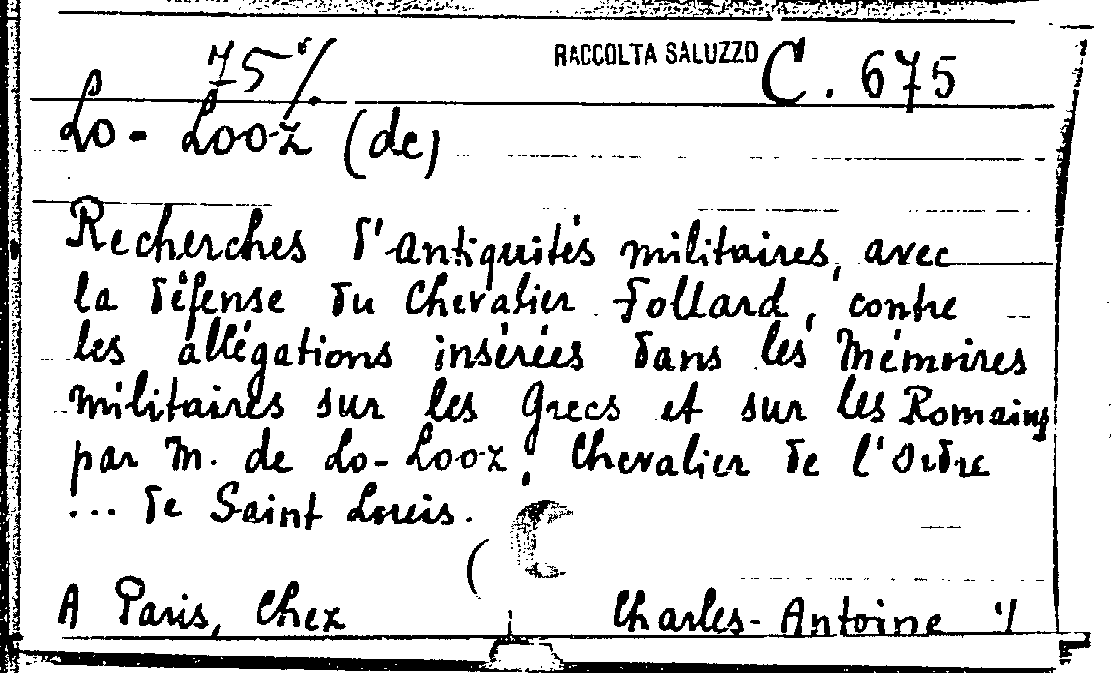 75%
RACCOLTA SALUZZO C. 675
Lo-Looz (de)
Recherches d'antiquités militaires, avec
la défense du Chevalier Follard, contre
les allégations insérées dans les Mémoires
militaires sur les Grecs et sur les Romains
par M. de Lo-Looz, Chevalier de l'Ordre
... de Saint Louis.
A Paris, Chez Charles-Antoine